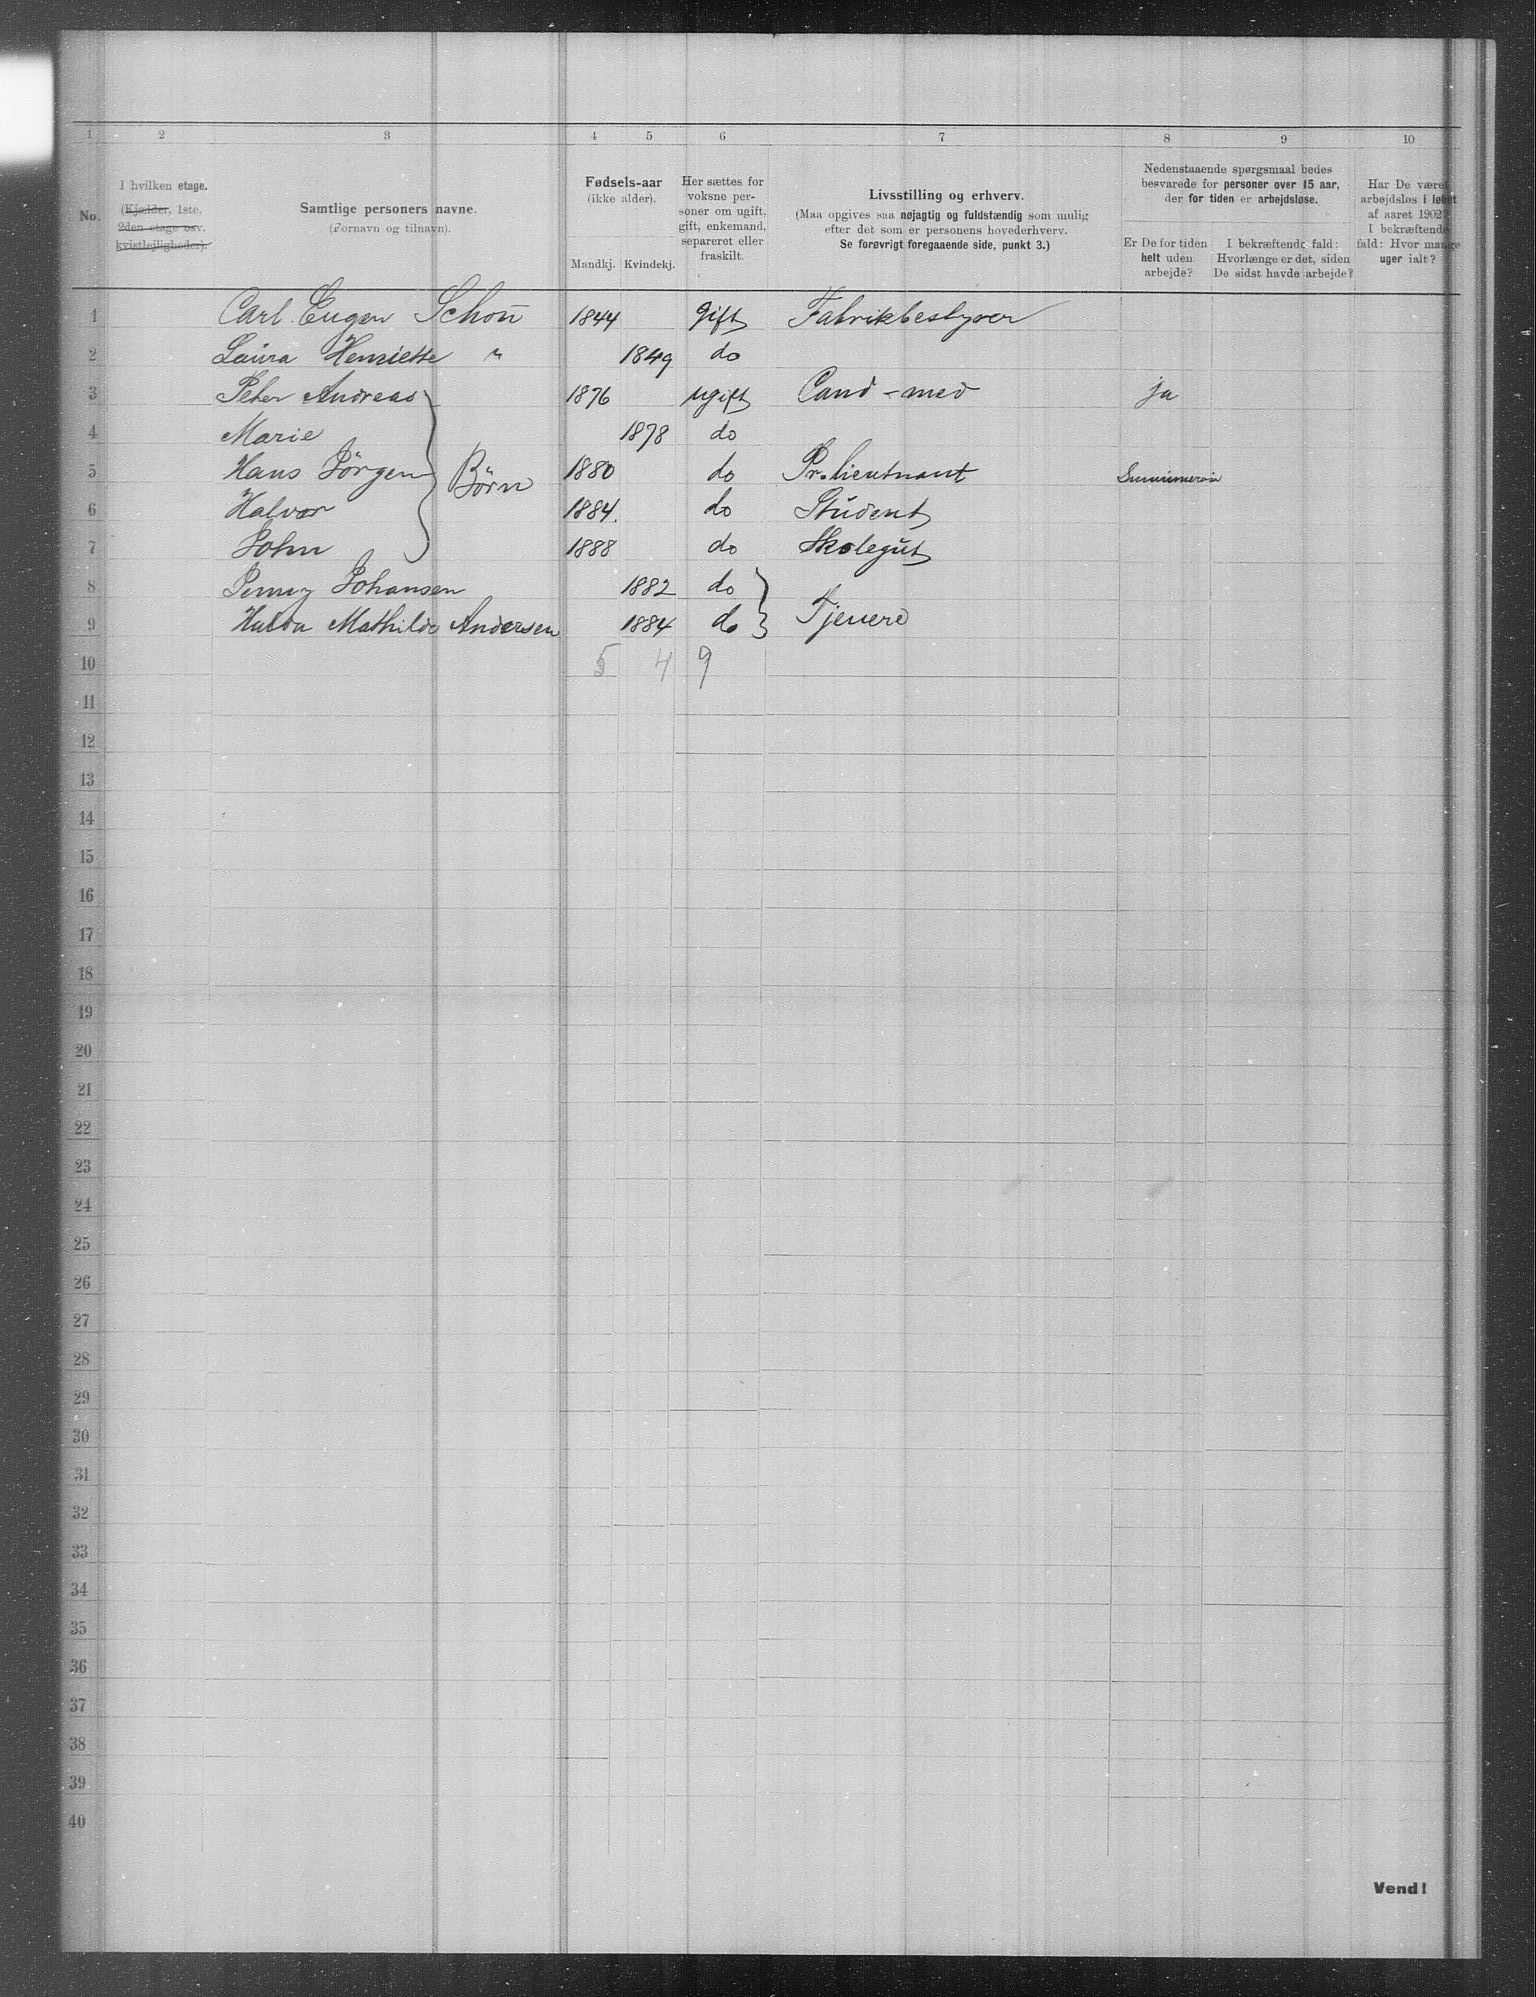 1 2 3 4 5 6 7 8 9 10
No.
I hvilken etage.
(Kjælder, 1ste,
2den etage osv.
kvistlejligheder).
Samtlige personers navne.
(Fornavn og tilnavn).
Fødsels-aar
(ikke alder).
Mandkj. Kvindekj.
Her sættes for
voksne per-
soner om ugift,
gift, enkemand,
separeret eller
fraskilt.
Livsstilling og erhverv.
(Maa opgives saa nøjagtig og fuldstændig som mulig
efter det som er personens hovederhverv.
Se forøvrigt foregaaende side, punkt 3.)
Nedenstaaende spørgsmaal bedes
besvarede for personer over 15 aar,
der for tiden er arbejdsløse.
Er De for tiden
helt uden
arbejde?
I bekræftende fald:
Hvorlænge er det, siden
De sidst havde arbejde?
Har De været
arbejdsløs i løbet
af aaret 1902?
I bekræftende
fald: Hvor mange
uger ialt?
1 Carl Eugen Schou 1844 gift Fabrikbestyrer
2 Laura Henriette " 1849 do
3 Peter Andreas 1876 ugift Cand-med ja
4 Marie 1878 do
5 Hans Jörgen Börn 1880 do Pr.lieutnant
6 Halvor 1884. do Student
7 John 1888 do Skolegut
8 Johansen 1882 do
9 Hulda Mathilde Andersen 1884 do Tjenere
10 5 4 9
11
12
13
14
15
16
17
18
19
20
21
22
23
24
25
26
27
28
29
30
31
32
33
34
35
36
37
38
39
40
Vend!